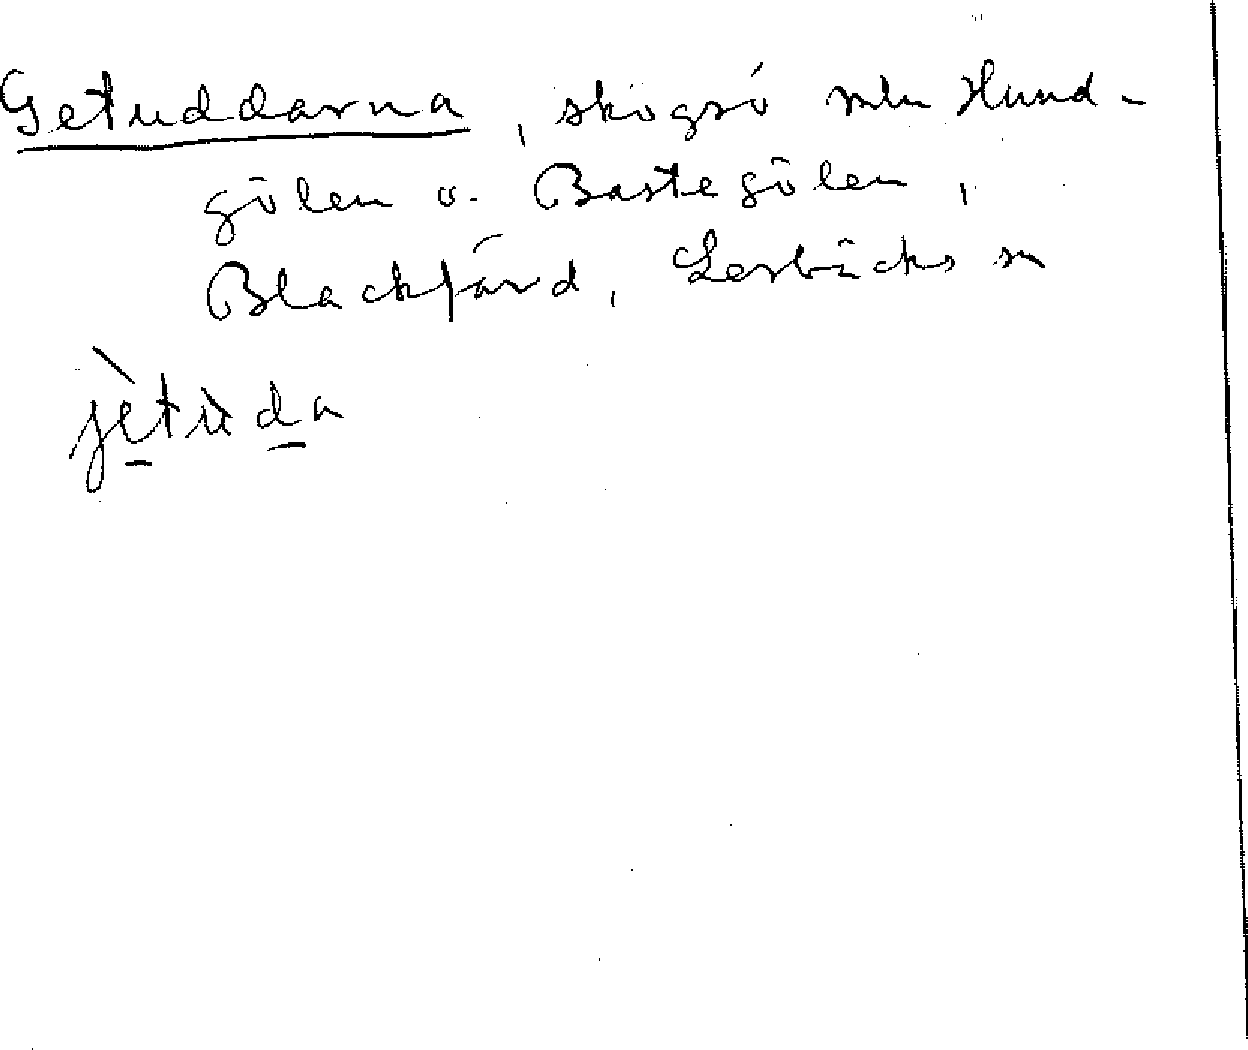 Getuddarna, skogsö mln Hund-
gölen o. Bastegölen,
Blackfärd, Lerbäcks sn
jètùda